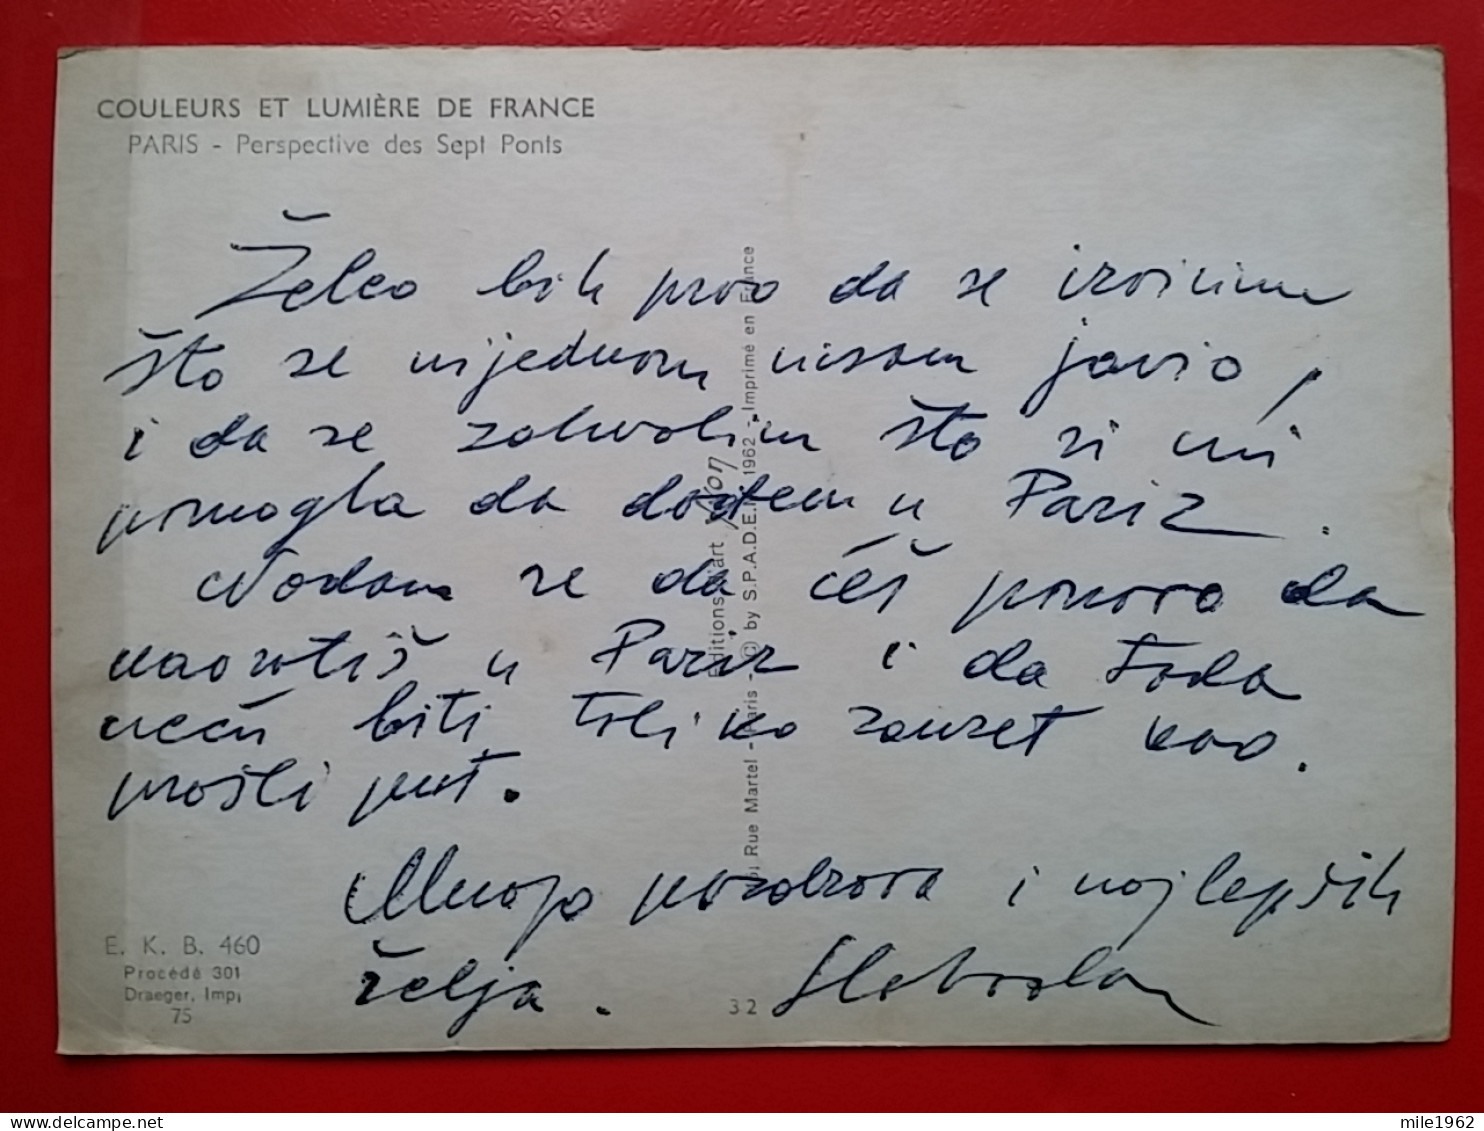 COULEURS ET LUMIÈRE DE FRANCE
PARIS - Perspective des Sept Ponts
Želeo bih prvo da se izvinim
što se nijednom nisam javio,
i da se zahvalim što si mi
pomogla da dođem u Pariz.
Nadam se da ćeš ponovo da
navratiš u Pariz i da tada
neću biti toliko zauzet kao
prošli put.
Mnogo pozdrava i najlepših
želja. Slobodan
Editions d'art Yvon
Rue Martel - Paris - © by S.P.A.D.E.M. 1962 - Imprimé en France
E. K. B. 460
Procédé 301
Draeger, Imp.
75
32
mile1962